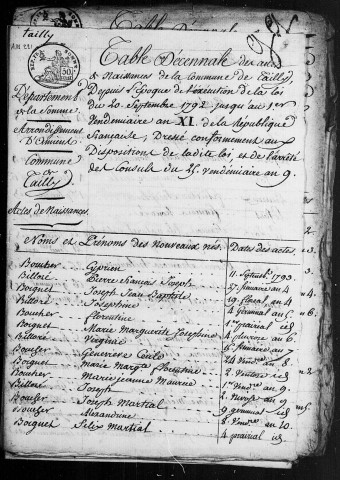 Tailly
Table Décennale des actes
de Naissances de la Commune de Tailly
Depuis l'Epoque de l'exécution de la loi
du 20. Septembre 1792 jusqu'au 1er
Vendémiaire an XI. de la République
française, Dressé conformement aux
Disposition de la dite loi, et de l'arrêté
des Consuls du 25. Vendémiaire an 9.
Département
de la Somme
Arrondissement
D'Amiens
Commune
de
Tailly
Actes de Naissances.
Noms et Prénoms des Nouveaux nés. Dates des actes
Boucher Cyprien 11. Septemb. 1793
Billoré Pierre François Joseph 27 frimaire an 4
Boiguet Joseph Jean Baptiste 19 floréal an 4
Billoré Joséphine 4 Germinal an 5
Boucher Florentine 1er prairial id
Boiguet Marie Marguerite Josephine 4 pluviose an 6
Billoré Virginie frimaire an 7
Boucher Geneviève 24 Vend.re an 8
Boiguet Marie Marg.te Florentine 2 Ventose id
Boucher Marie Jeanne 1er Vend.re an 9
Billoré Joseph 2 Nivose an 9
Boucher Joseph Martial 9 germinal id
Boucher Alexandrine Vend.re an 10
Boiguet Felix Martial 4 prairial id